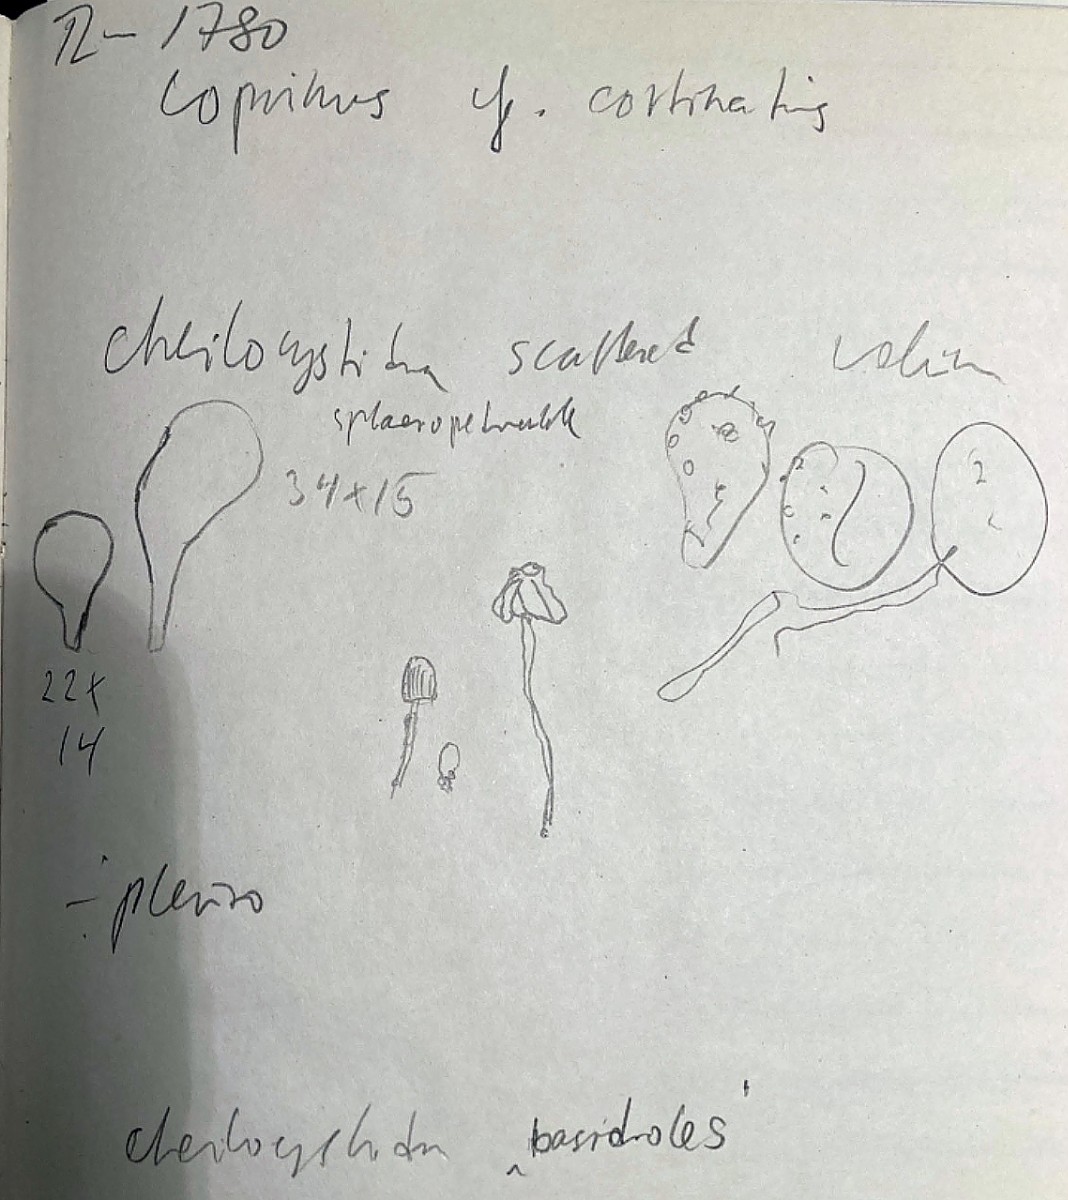 12-1780
Coprinus cf. cortinatus
cheilocystidia scattered velum
sphaeropedunculate
34x15
22x
14
÷ pleuro
cheilocystidia „basidioles"